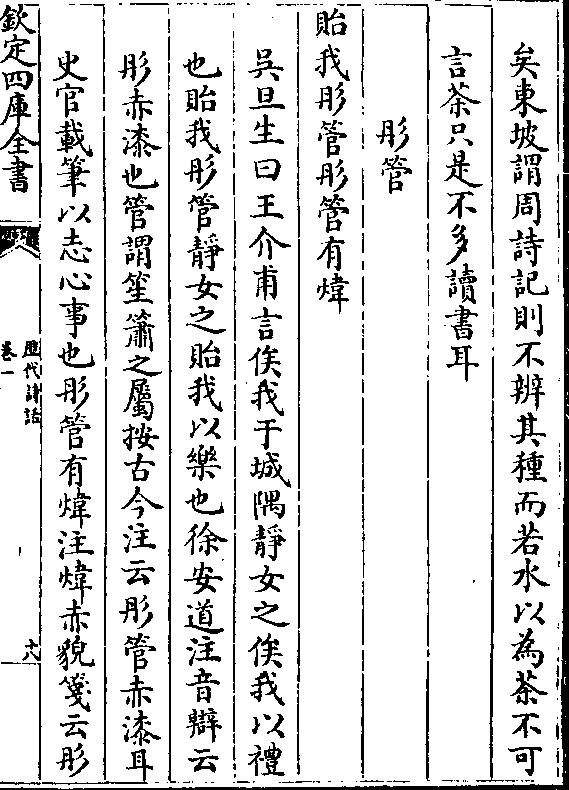 矣東坡謂周詩記則不辨其種而若水以為茶不可
言茶只是不多讀書耳
彤管
貽我彤管彤管有煒
吳旦生曰王介甫言俟我于城隅靜女之俟我以禮
也貽我彤管靜女之貽我以樂也徐安道注音辯云
彤赤漆也管謂笙簫之屬按古今注云彤管赤漆耳
史官載筆以志心事也彤管有煒注煒赤貌箋云彤
欽定四庫全書
歷代詩話
卷一
六